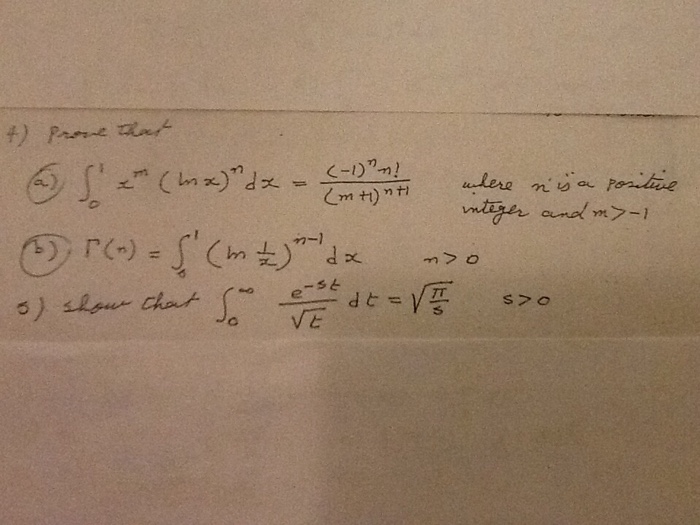 4) Prove that
(a) ∫₀¹ x^m (ln x)^n dx = (-1)^n n! / (m+1)^(n+1) where n is a positive integer and m > -1
(b) Γ(n) = ∫₀¹ (ln 1/x)^(n-1) dx n > 0
5) show that ∫₀^∞ e^(-st) / √t dt = √(π/s) s > 0